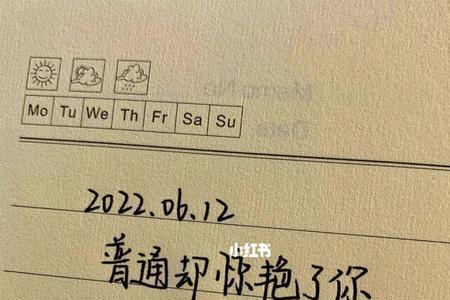 Mo Tu We Th Fr Sa Su
2022.06.12
小红书
普通却惊艳了你